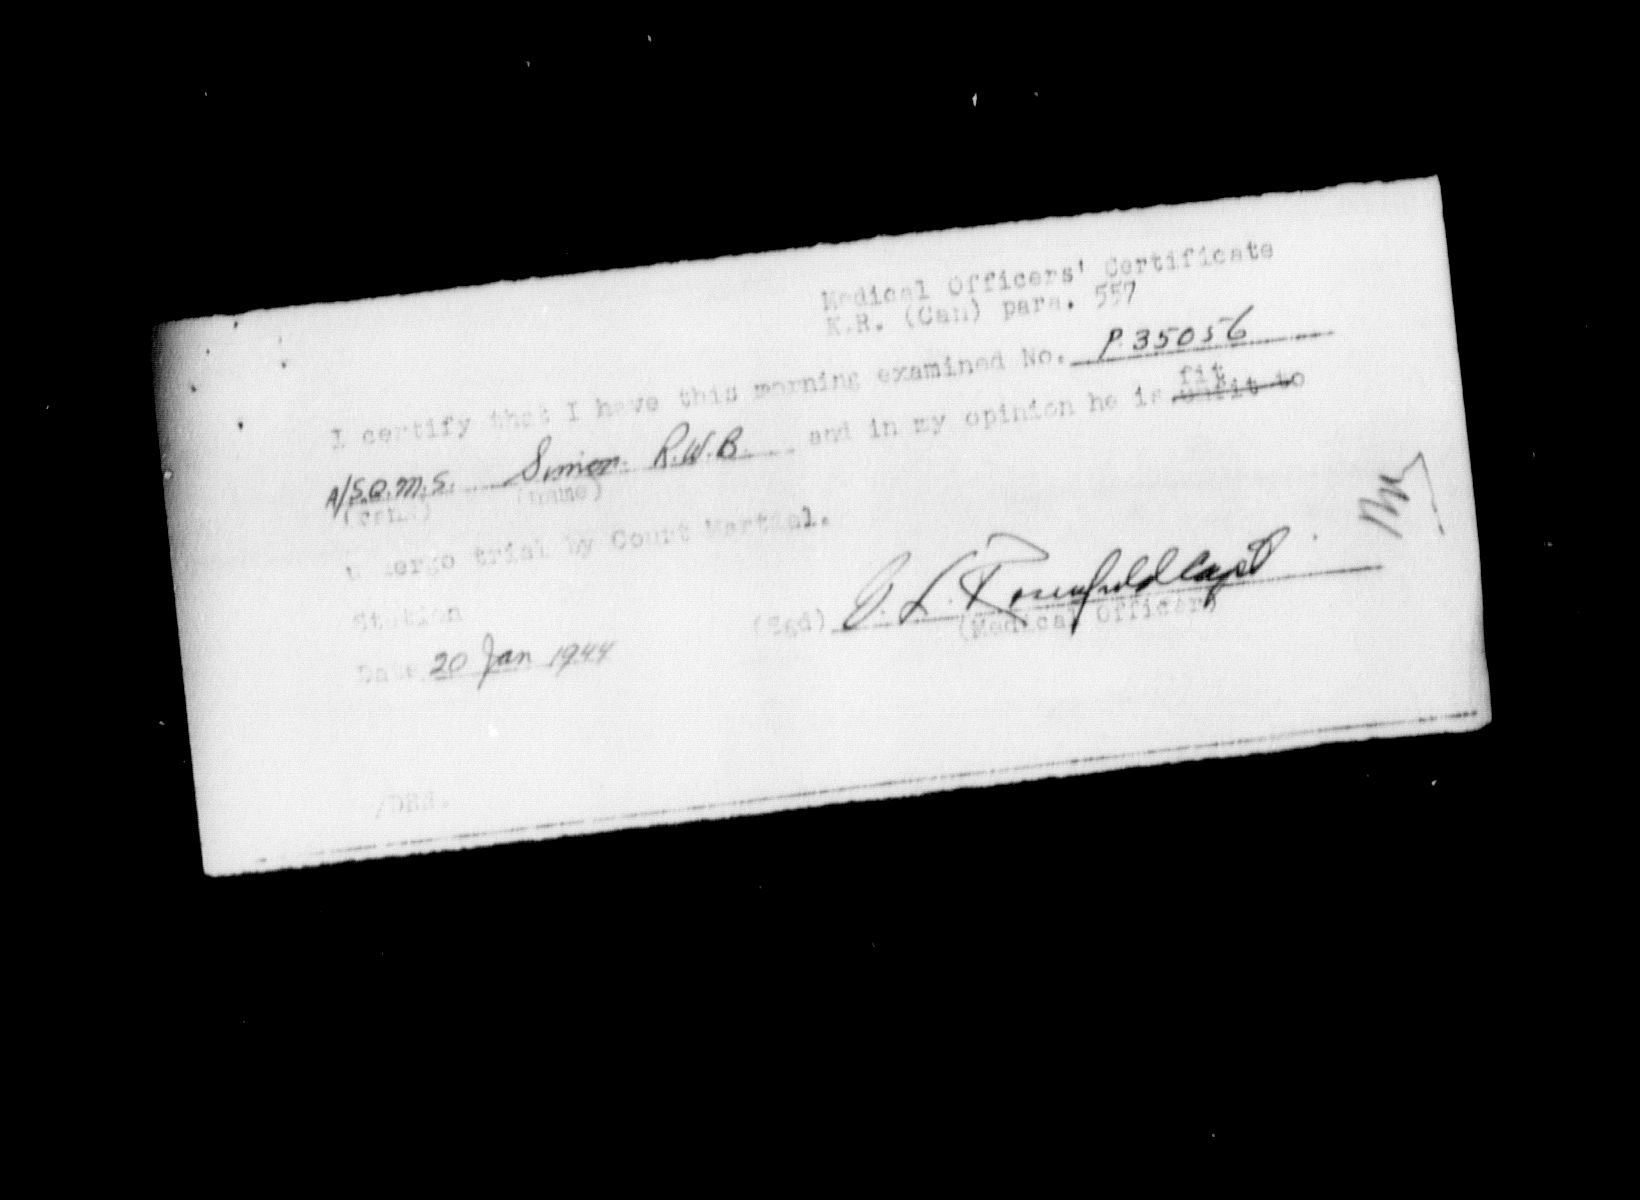 Medical Officers' Certificate
K.R. (Can) para. 557
I certify that I have this morning examined No. P.35056
A/S.Q.M.S. Simon. R.W.B. and in my opinion he is fit unfit to
(rank) (name)
undergo trial by Court Martial.
Station
(Sgd) L. Rosenfield Capt
(Medical Officer)
Date 20 Jan 1944